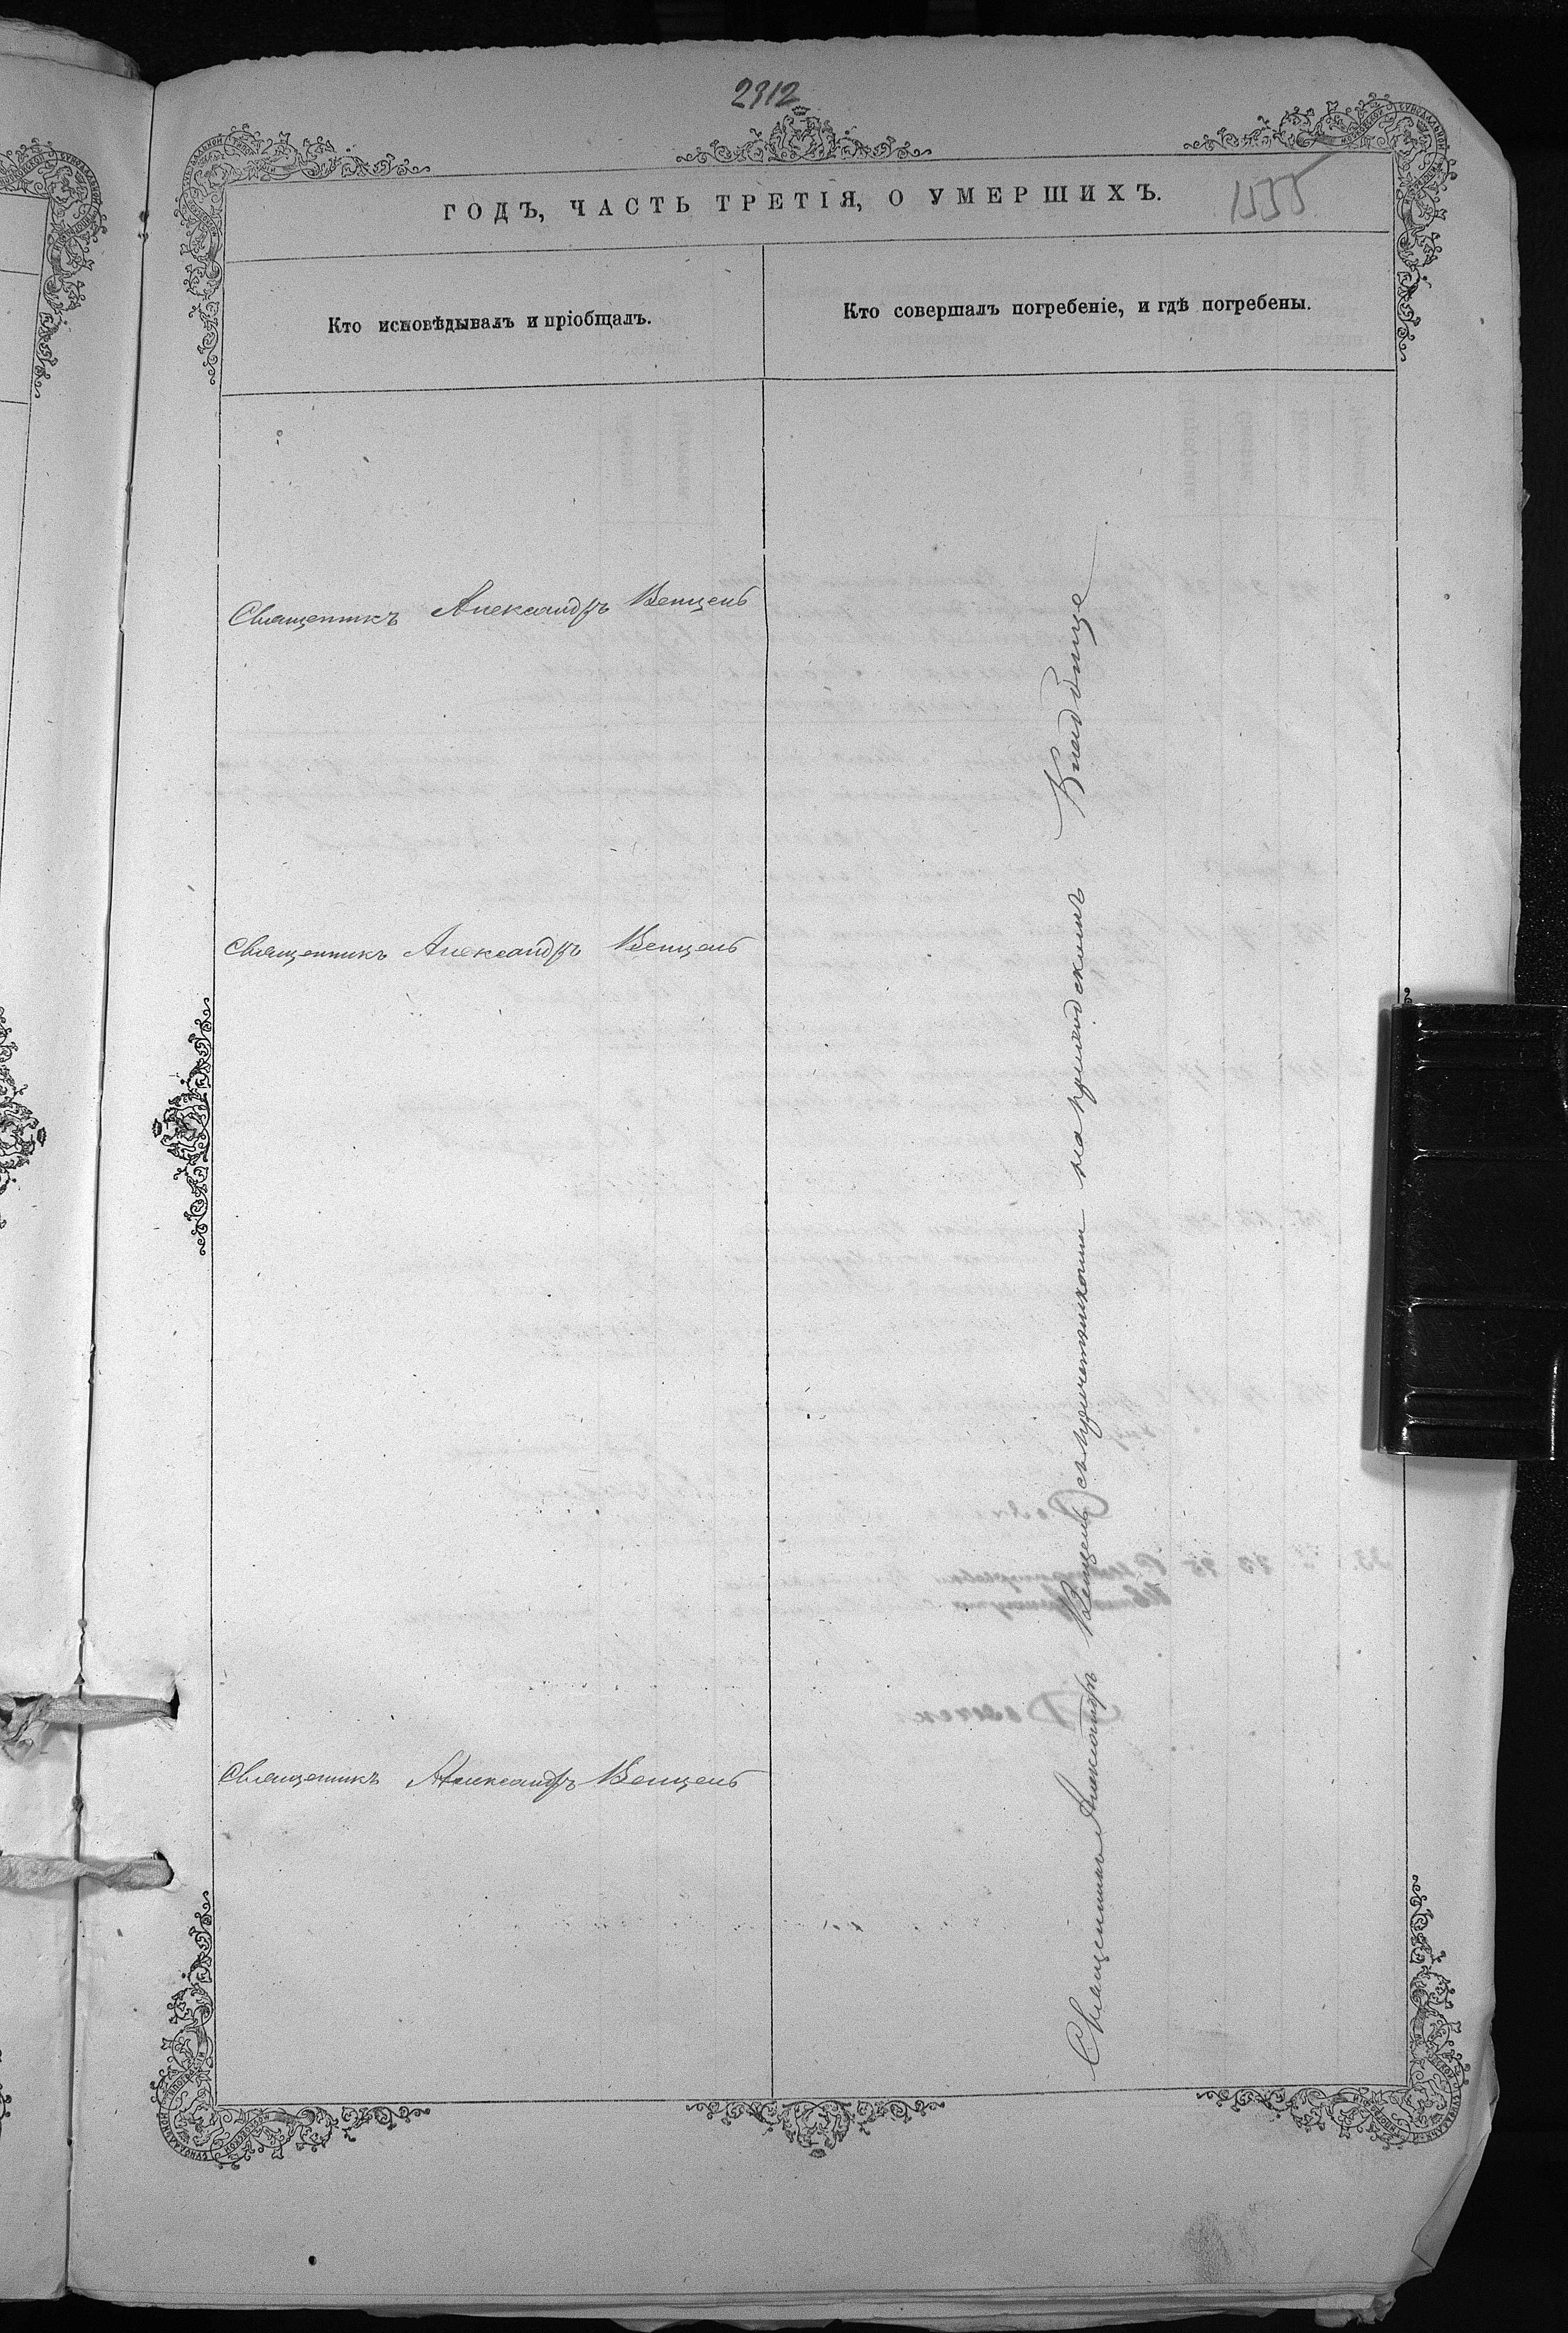 2312
1555
ГОДЪ, ЧАСТЬ ТРЕТІЯ, О УМЕРШИХЪ.
Кто исповѣдывалъ и пріобщалъ.
Кто совершалъ погребеніе, и гдѣ погребены.
Священникъ Александръ Венцель
Священникъ Александръ Венцель
Священникъ Александръ Венцель
Священникъ Александръ Венцель съ причетниками на приходскомъ Кладбище